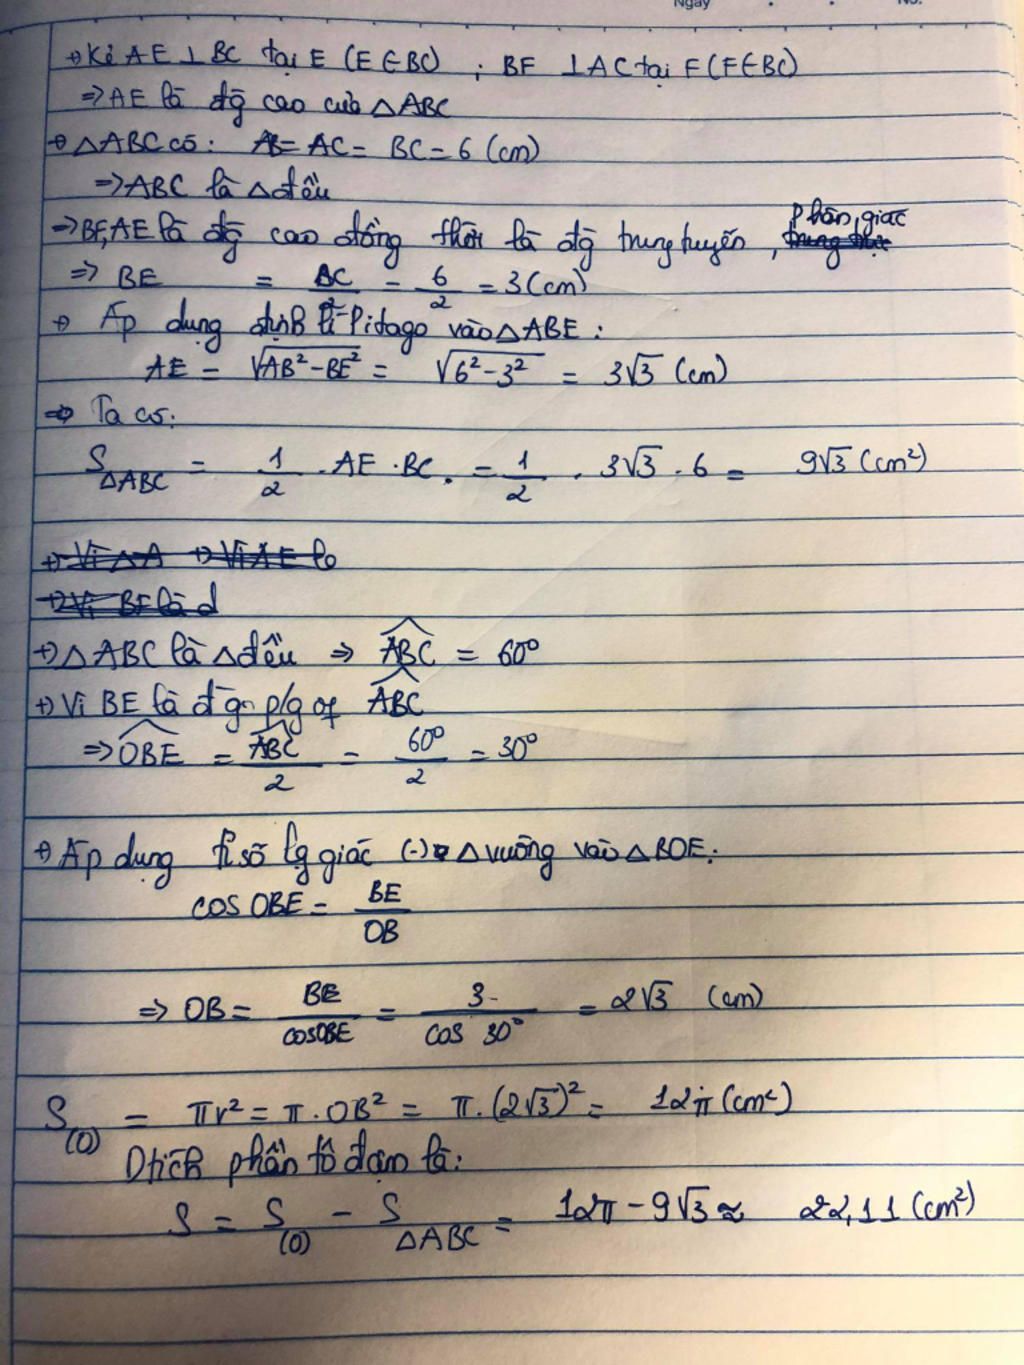 Ngày No.
+) Kẻ AE ⊥ BC tại E (E ∈ BC) ; BF ⊥ AC tại F (F ∈ BC)
⇒ AE là đg̅ cao của △ABC
+) △ABC có: AB = AC = BC = 6 (cm)
⇒ ABC là △ đều
⇒ BF, AE là đg̅ cao đồng thời là đg̅ trung tuyến, phân giác
⇒ BE = BC/2 = 6/2 = 3 (cm)
+) Áp dụng định lí Pitago vào △ABE:
AE = √(AB² - BE²) = √(6² - 3²) = 3√3 (cm)
⇒ Ta có:
S△ABC = 1/2 . AE . BC = 1/2 . 3√3 . 6 = 9√3 (cm²)
+) Vì △A +) Vì AE lo
+) Vì BF là d
+) △ABC là △ đều ⇒ ABC = 60°
+) Vì BE là đg̅ p/g of ABC
⇒ OBE = ABC/2 = 60°/2 = 30°
+) Áp dụng tỉ số lg giác (-) △ vuông vào △BOE:
cos OBE = BE/OB
⇒ OB = BE/cosOBE = 3/cos 30° = 2√3 (cm)
S(O) = πr² = π . OB² = π . (2√3)² = 12π (cm²)
Dtích phần tô đậm là:
S = S(O) - S△ABC = 12π - 9√3 ≈ 22,11 (cm²)